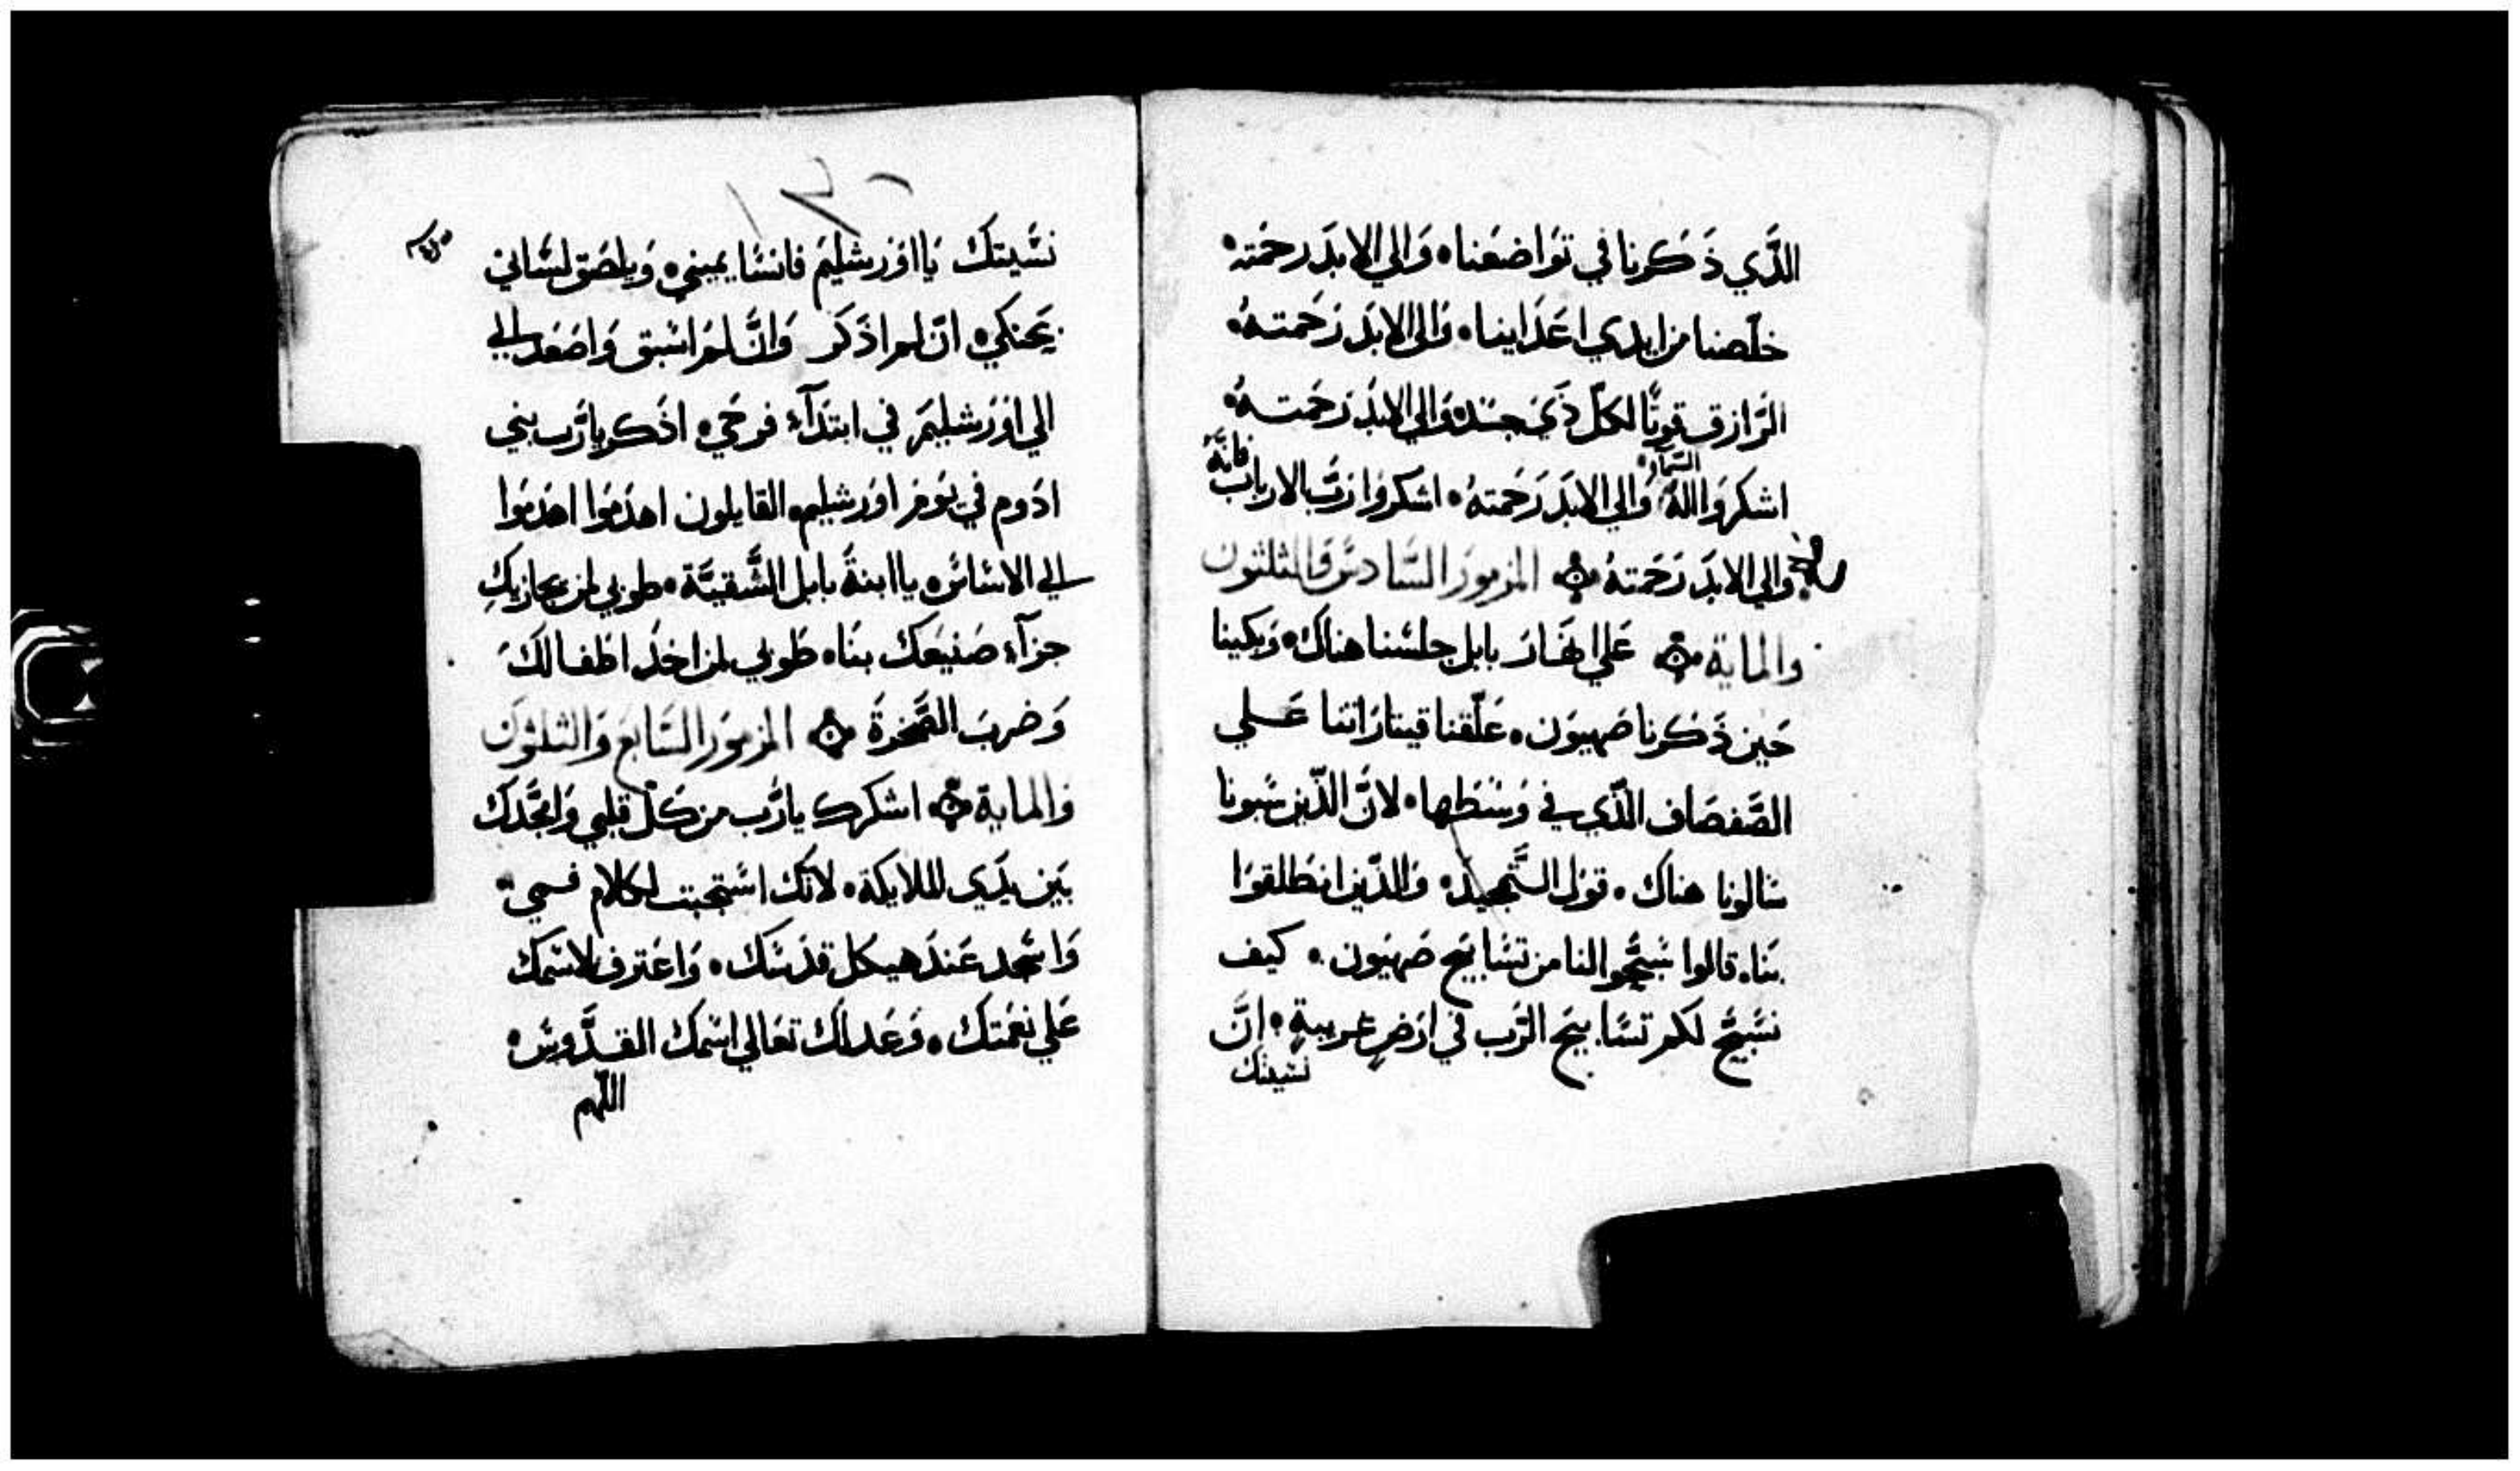 الَّذي ذَكَرنا في تَوَاضعَنا ۰ وَالي الابدَ رحمَته ۰
خلّصنا من ايدي اعَدَاينا ۰ وَالي الابَدَ رَحَمتهُ ۰
الرَّازق قوتًا لكلّ ذي جسَد ۰ وَالي الابدَ رَحَمتهُ ۰
السَّماءِ فانَّهُ
اشكروَا اللهَ وَالي الابَدَ رَحَمتهُ ۰ اشكروُا رَبَّ الاربابَ
وَالي الابدَ رَحَمَتهُ ۰ المزمور السَّادسَ وَالثلثون
والماية ۰ عَلي انهَار بابل جلسَنا هناكَ ۰ وَبكينا
حَين ذَكَرنا صَهيوَن ۰ عَلّقنا قيتارَاتنا عَلي
الصَّفصَاف الذّي في وَسَطها ۰ لانَّ الذّين سَبونا
سَالونا هناك ۰ قوَل التَّمجيدَ ۰ وَالذّين انطلقوَا
بنَا ۰ قالوا سَبّحوا لنا من تسَابيح صَهيَون ۰ كيف
نسَبّح لكم تسَابيح الرَّب في ارَضٍ غريبةٍ ۰ انَّ
نسَيتك
نسَّيتك يَا اوَرشليمَ فانسَا يميني ۰ وَيلصَق لسَاني
بحَنكي ۰ انّ لم اذَكر وَانَّ لم اسَبق وَاصَعَد الي
الي اوَرَشليمَ في ابتدَآءِ فرحَي ۰ اذَكر يا رَّب بني
ادَوم في يَوم اوَرشليم ۰ القايلون اهدَموَا اهدَموَا
الي الاسَاسَ ۰ يا ابنةُ بابل الشَّقيَّة ۰ طوبي لمن يجازيكِ
جزآءِ صَنيَعك بنَا ۰ طَوبي لمن اخذَ اطفَالكَ
وَضربَ الصَّخرةَ ۰ المزمَور السَّابعَ وَالثلثونَ
وَالماية ۰ اشكرك يا رَّب من كلّ قلبي وَامجَّدَك
بَين يدَي الملايكة ۰ لانّك اسَتجَبت لكلام فمي ۰
وَاسَّجد عَندَ هيكل قدَسَك ۰ وَاعَترف لاسَمك
عَلي نعَمتك ۰ وَعَدلك تعَالي اسَمك القدَّوسَ ۰
اللّهم